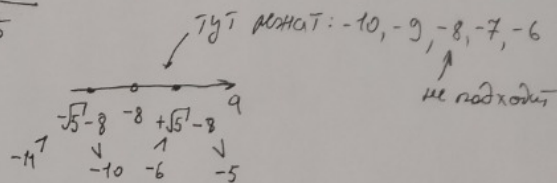 5
тут лежат: -10, -9, -8, -7, -6
не подходит
-√5-8 -8 +√5-8 a
-11 -10 -6 -5